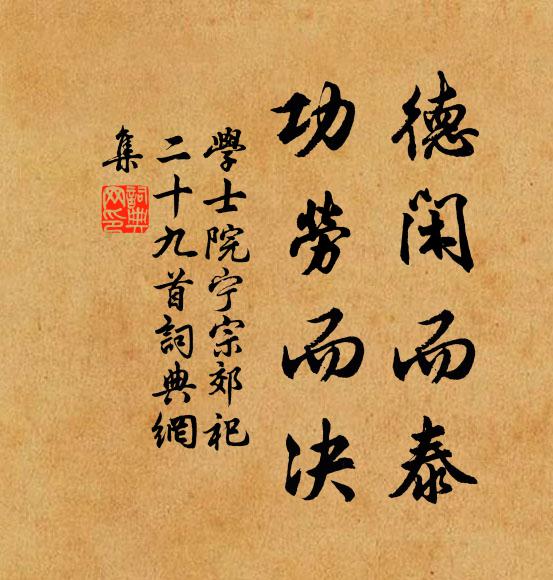 德閑而泰
功勞而決
學士院宁宗郊祀
二十九首詞典網
集
詞典
网印